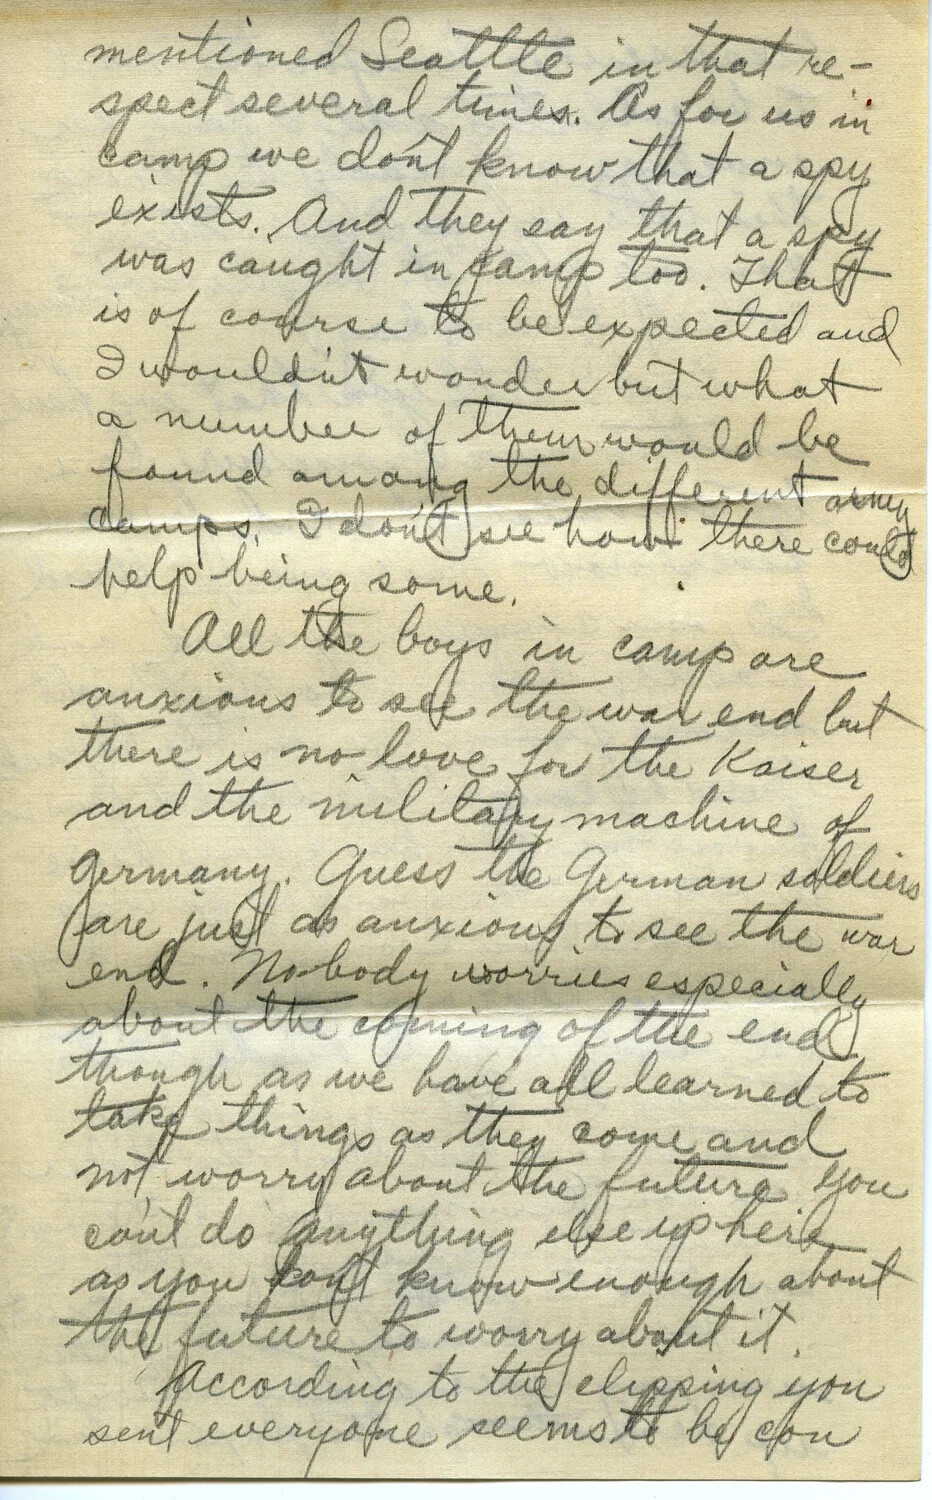 mentioned Seattle in that re-
spect several times. As for us in
camp we don't know that a spy
exists. And they say that a spy
was caught in camp too. That
is of course to be expected and
I wouldn't wonder but what
a number of them would be
found among the different army
camps. I don't see how there could
help being some.
All the boys in camp are
anxious to see the war end but
there is no love for the Kaiser
and the military machine of
Germany. Guess the German soldiers
are just as anxious to see the war
end. Nobody worries especially
about the coming of the end
though as we have all learned to
take things as they come and
not worry about the future you
can't do anything else up here
as you don't know enough about
the future to worry about it.
According to the clipping you
sent everyone seems to be con